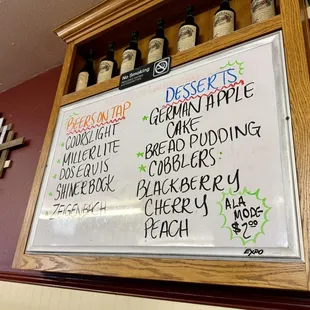 NO SMOKING
BEERS ON TAP
COORS LIGHT
MILLER LITE
DOS EQUIS
SHINERBOCK
ZEIGENBOCH
DESSERTS
GERMAN APPLE
CAKE
BREAD PUDDING
COBBLERS:
BLACKBERRY
CHERRY
PEACH
ALA
MODE
$2.99
EXPO